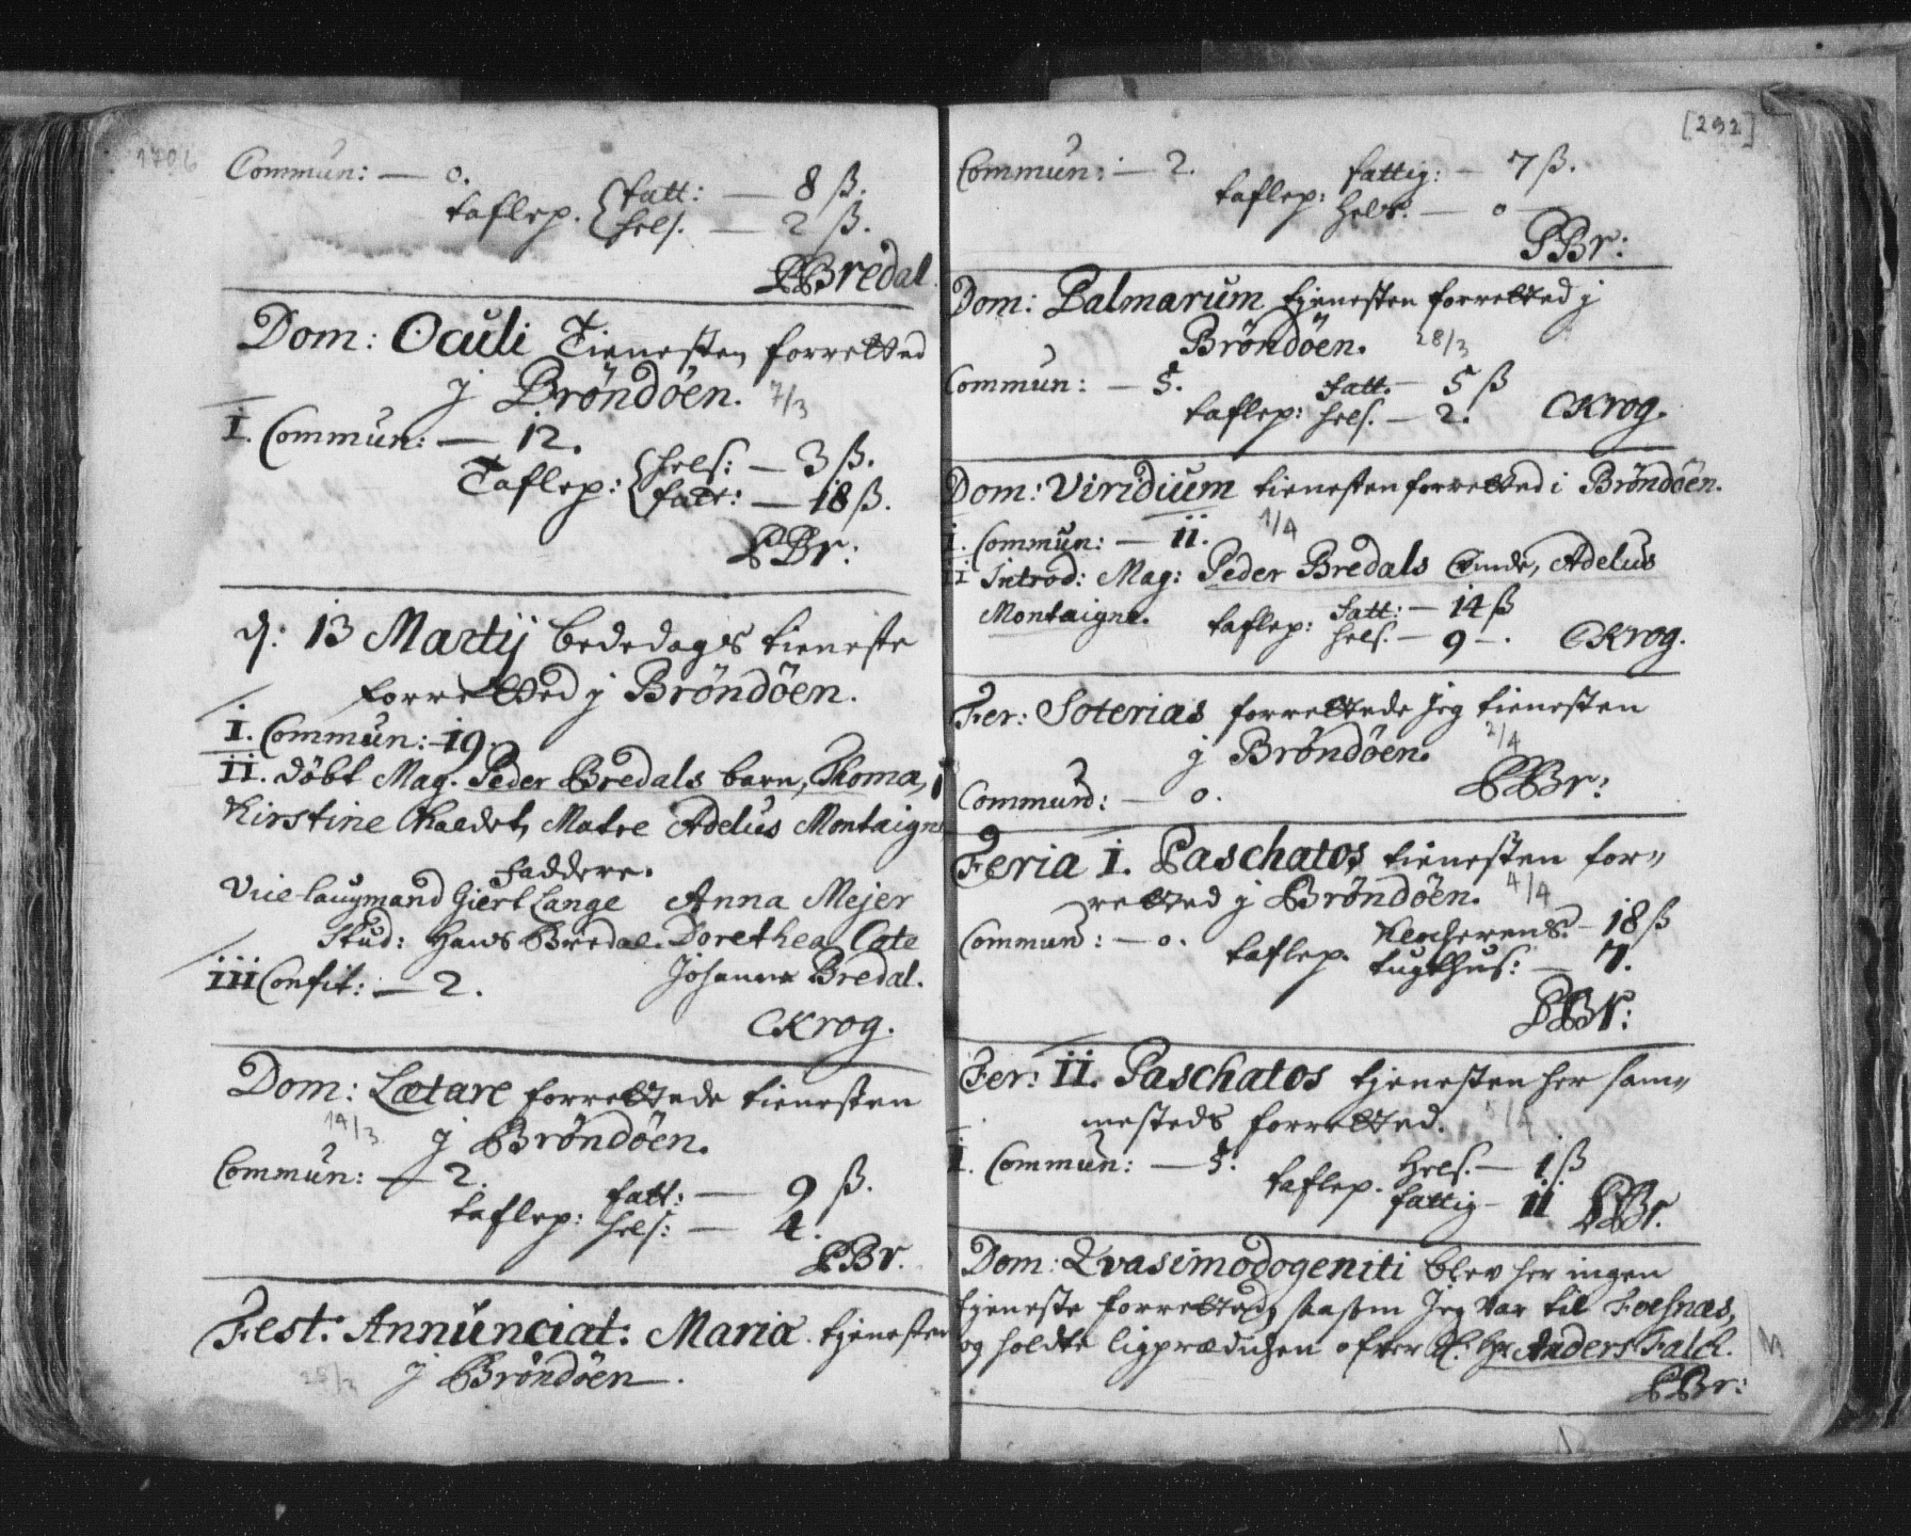 1706
Commun: — 0.
taflep. fatt: — 8 ß.
hels. — 2 ß.
PBredal.
Dom: Oculi Tienesten forretted
j Bröndöen. 7/3
I. Commun: — 12.
Taflep: hels: — 3 ß.
fatt: — 18 ß.
PBr:
d: 13 Martij bededags tieneste
forretted j Bröndöen.
I. Commun: 19.
II. döbt Mag. Peder Bredals barn, Thoma,
Kirstine kaldet, Matre Adelus Montaigne
Faddere.
Vice laugmand Giert Lange Anna Mejer
Stud: Hans Bredal. Dorethea Cate
Johanna Bredal.
III Confit: — 2.
CKrog.
Dom: Lætare forrettede tienesten
14/3 j Bröndöen.
Commun: — 2.
taflep: fatt: — 9 ß.
hels: — 4.
PBr.
Fest: Annunciat: Mariæ tjenesten
j Bröndöen.
[292]
Commun: — 2.
taflep: fattig: — 7 ß.
Hels: — 0
PBr:
Dom: Palmarum tjenesten forretted j
Bröndöen. 28/3
Commun: — 5.
taflep: fatt. — 5 ß
hels. — 2.
CKrog.
Dom: Viridium tienesten forretted i Bröndöen.
I. Commun: — 11. 1/4
II Introd: Mag: Peder Bredals Qvinde, Adelus
Montaigne. taflep: fatt: — 14 ß
hels. — 9 —.
CKrog.
Fer: Soterias forrettede jeg tienesten
j Bröndöen. 2/4
PBr:
Commun: — 0.
Feria I. Paschatos tienesten for„
retted j Bröndöen. 4/4
Commun: — 0. taflep. — 18 ß
tugthus: — 7.
PBr:
Fer: II. Paschatos tjenesten her sam„
mesteds forretted. 5/4
I. Commun: — 5.
taflep. Hels. — 1 ß
fattig — 11
PBr.
Dom: Qvasimodogeniti blev her ingen
tjeneste forretted, saasom jeg var til Foesnæs,
og holdte ligprædichen ofver Anders Falch.
PBr: